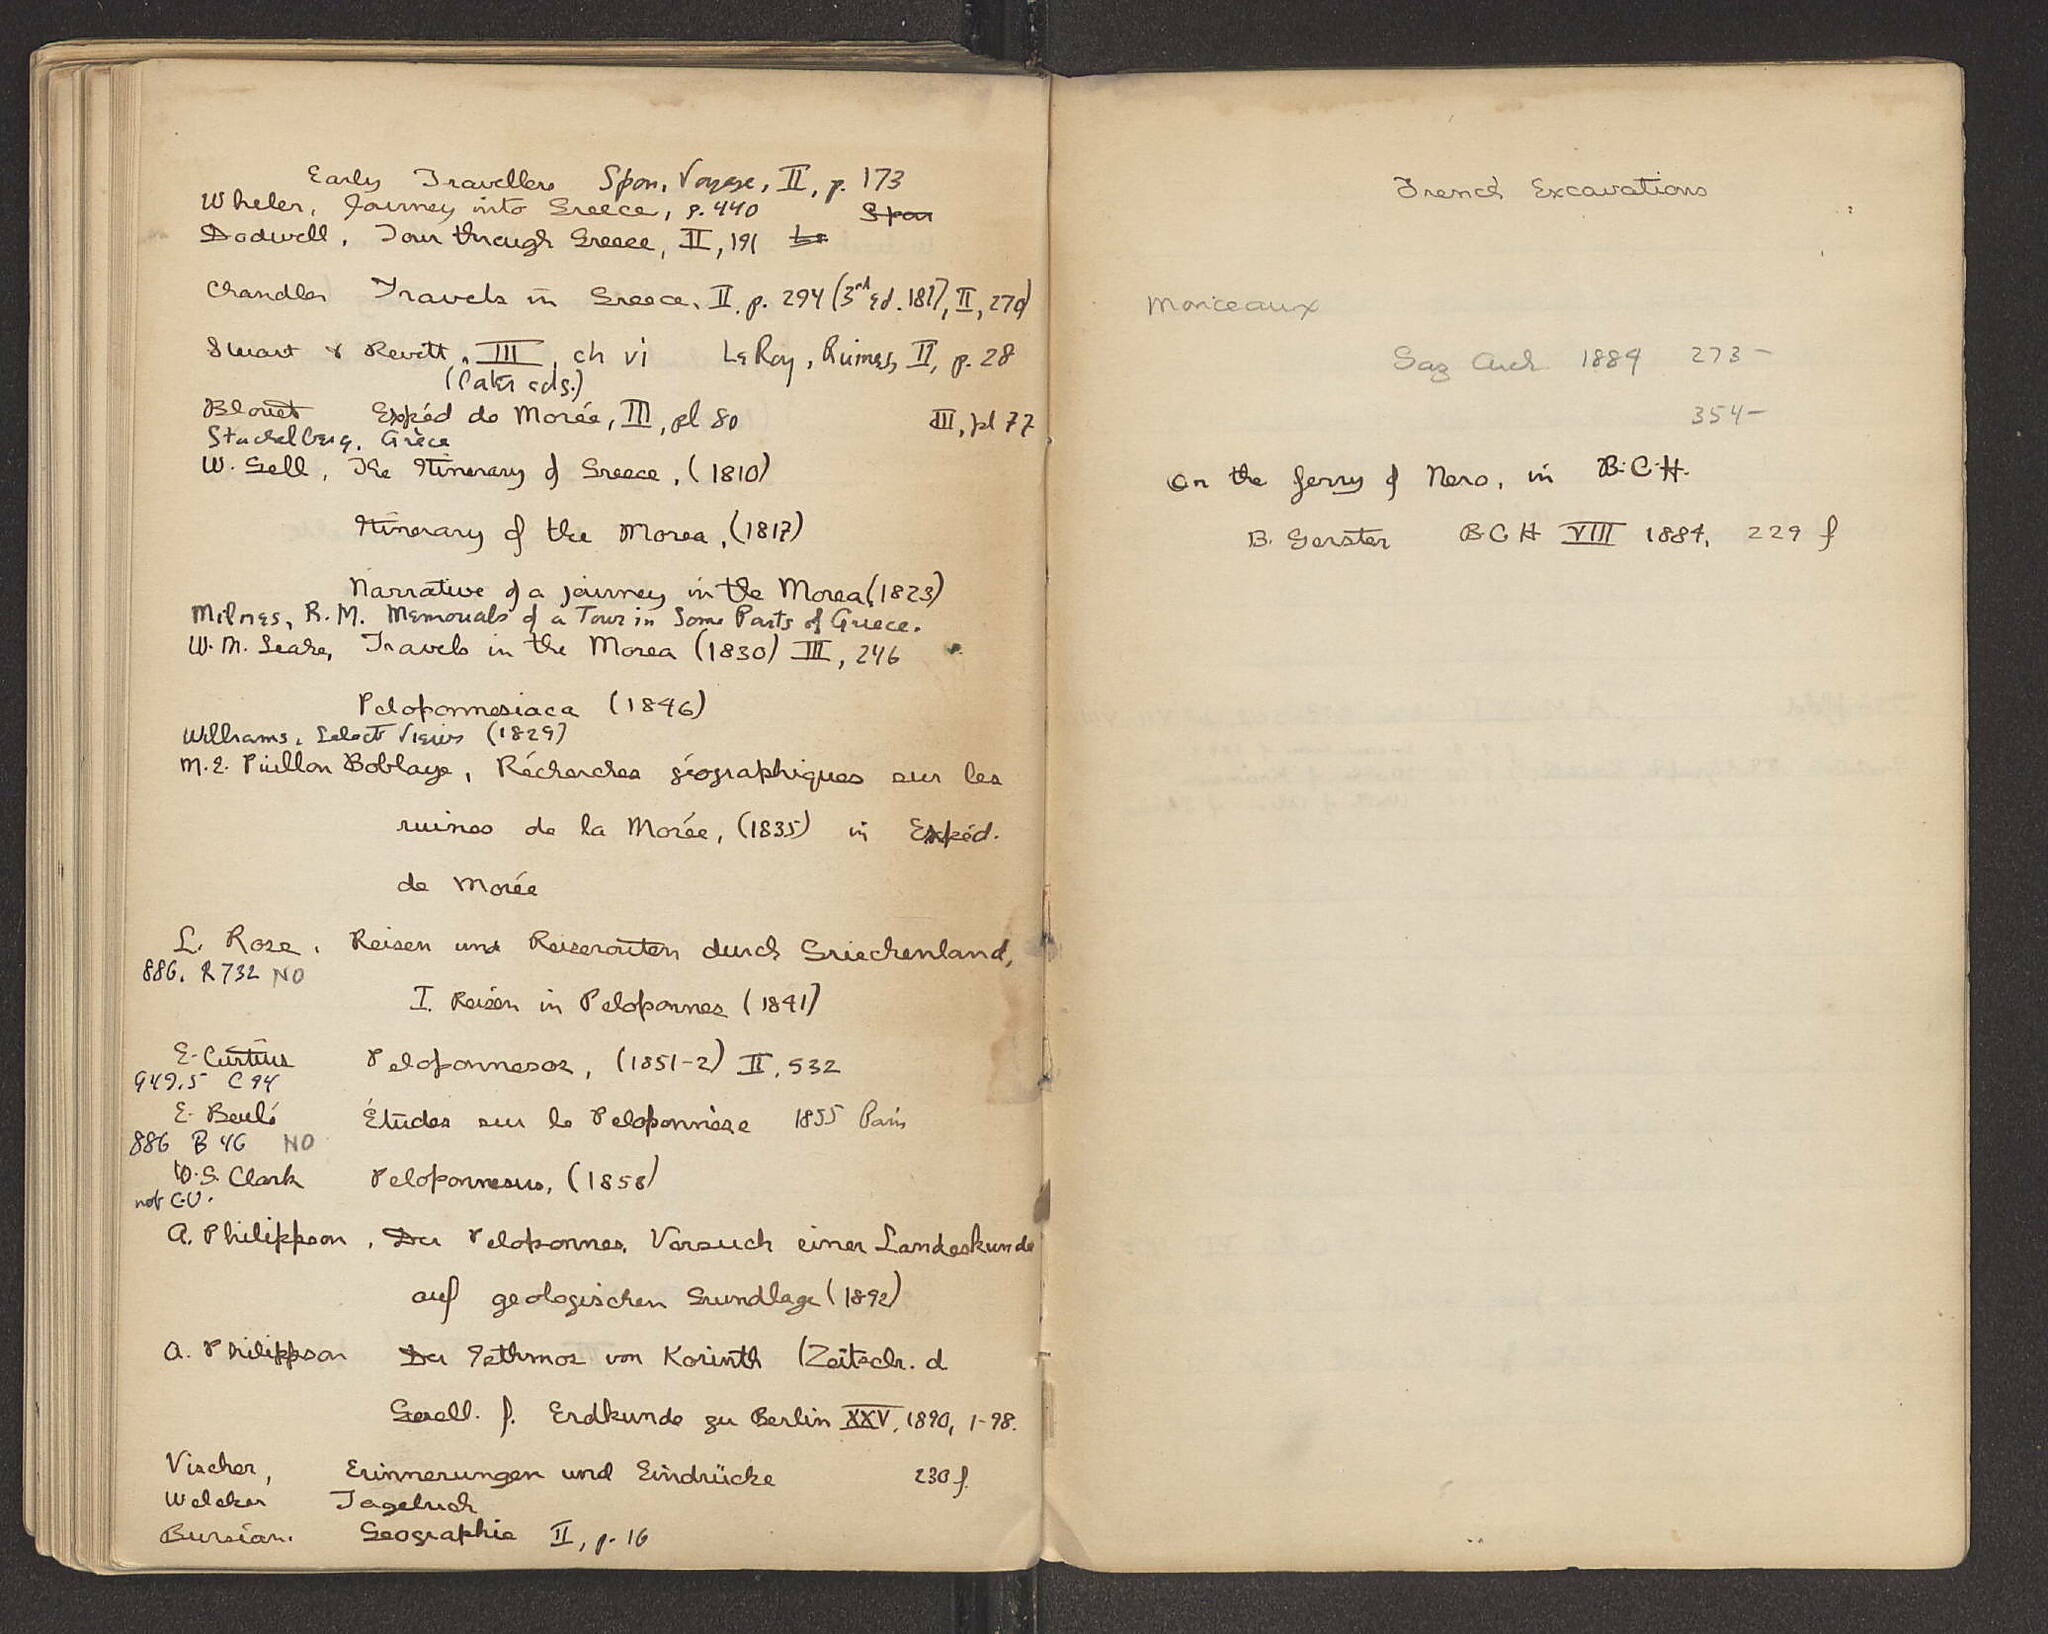 Early Travellers Spon, Voyage, II, p. 173
Wheler, Journey into Greece, p. 440 Spon
Dodwell, Tour through Greece, II, 191
Chandler Travels in Greece, II. p. 294 (3rd Ed. 1817, II, 270)
Stuart & Revett, III, ch vi Le Roy, Ruines, II, p. 28
(later eds.)
Blouet Expéd de Morée, III, pl 80 III, pl 77
Stackelberg, Grèce
W. Gell, The Itinerary of Greece, (1810)
Itinerary of the Morea, (1817)
Narrative of a journey in the Morea (1823)
Milnes, R. M. Memorials of a Tour in Some Parts of Greece.
W. M. Leake, Travels in the Morea (1830) III, 246
Peloponnesiaca (1846)
Williams, Select Views (1829)
M. E. Puillon Boblaye, Récherches géographiques sur les
ruines de la Morée, (1835) in Expéd.
de Morée
L. Ross, Reisen und Reiserouten durch Griechenland,
886. R732 NO
I. Reisen in Peloponnes (1841)
E. Curtius Peloponnesos, (1851-2) II, 532
949.5 C94
E. Beulé Études sur le Péloponnèse 1855 Paris
886 B46 NO
W. G. Clark Peloponnesus, (1858)
not C.U.
A. Philippson, Der Peloponnes, Versuch einer Landeskunde
auf geologischen Grundlage (1892)
A. Philippson Der Isthmos von Korinth (Zeitschr. d
Gesell. f. Erdkunde zu Berlin XXV, 1890, 1-98.
Vischer, Erinnerungen und Eindrücke 230 f.
Welcker Tagebuch
Bursian. Geographie II, p. 16
French Excavations
Monceaux
Gaz Arch 1884 273-
354-
On the ferry of Nero, in B.C.H.
B. Gerster BCH VIII 1884, 229 f